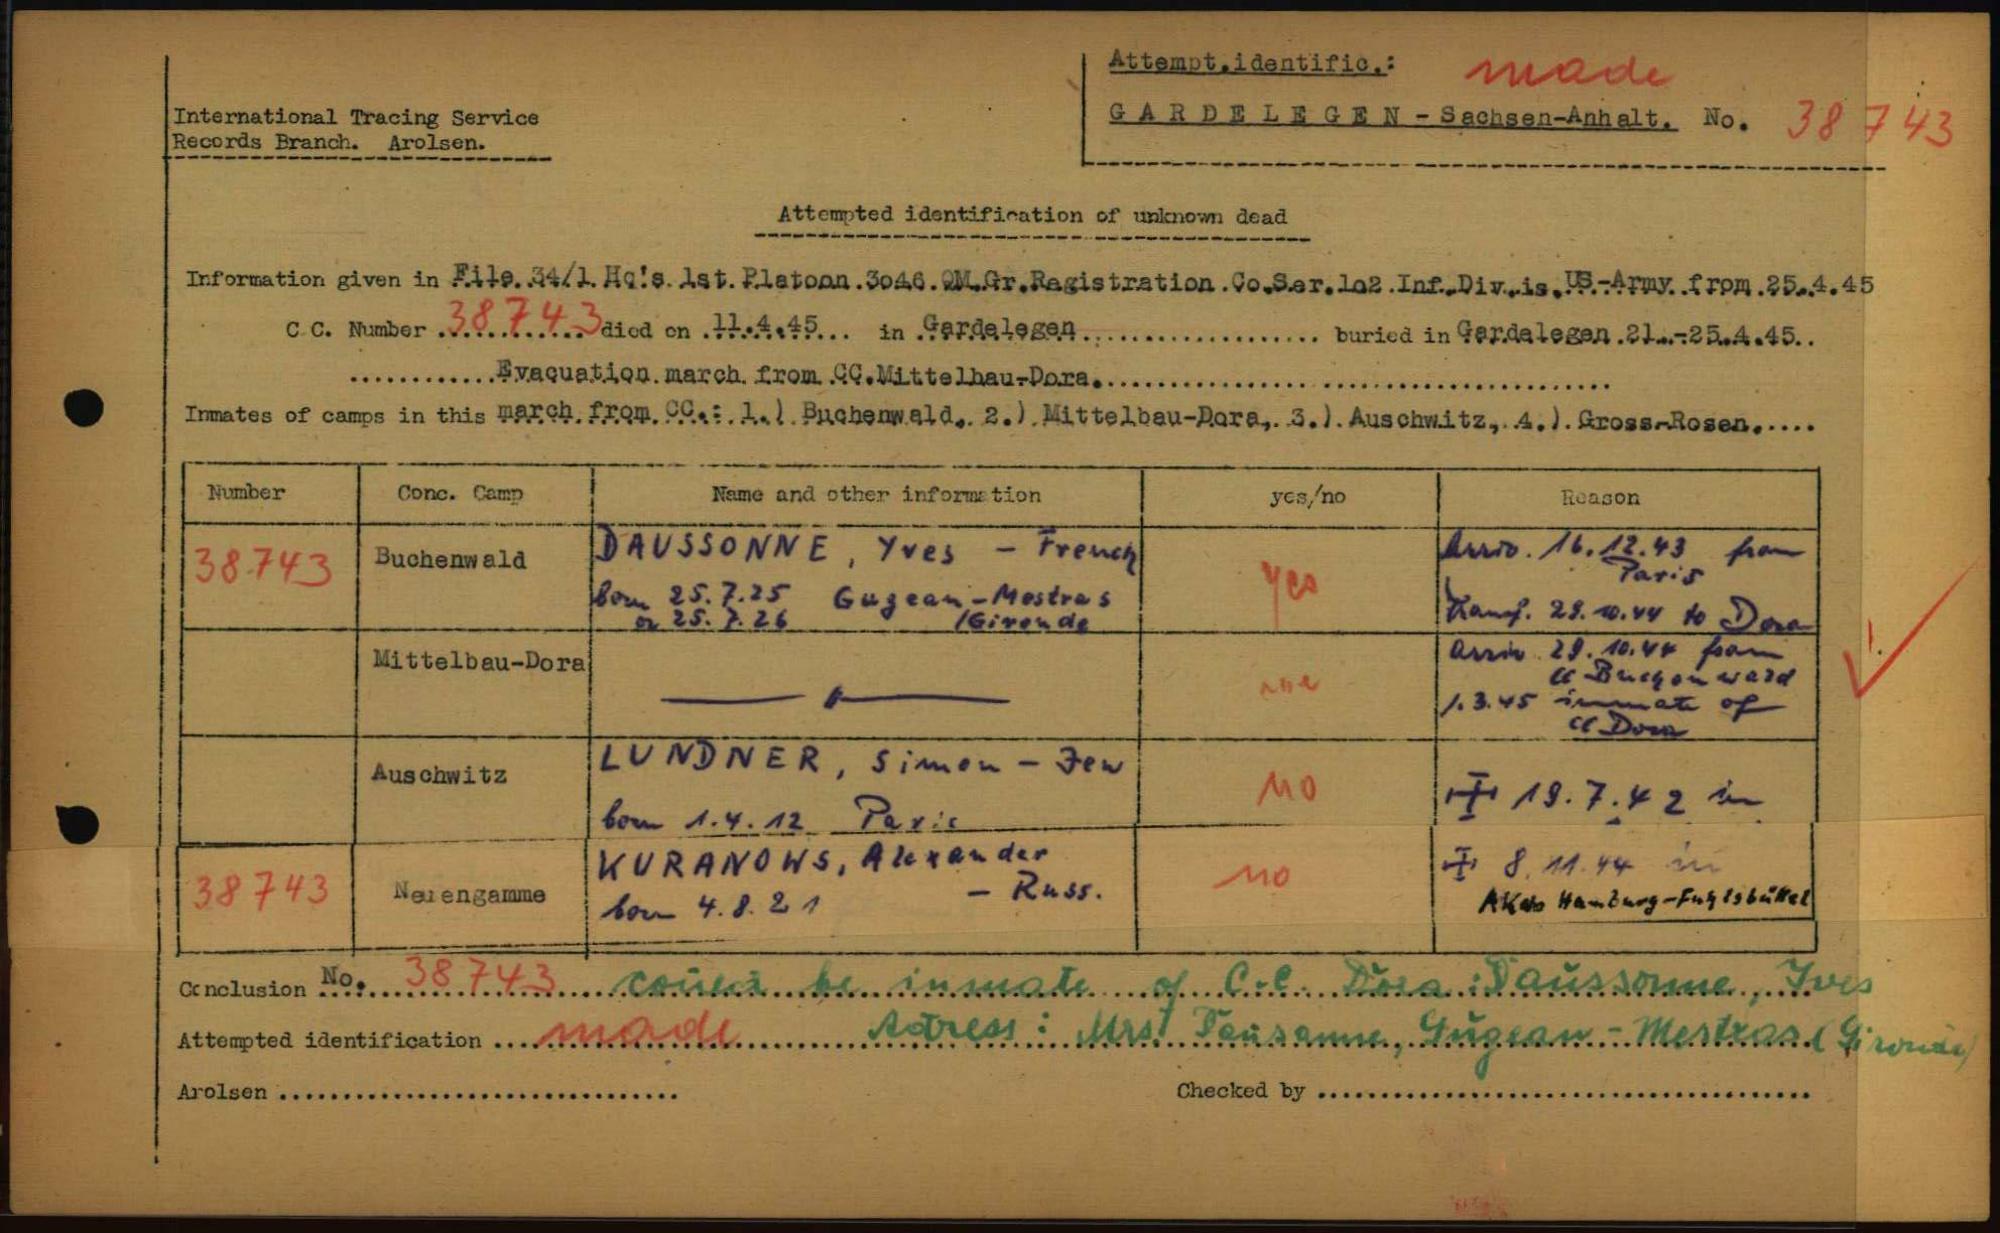 Attempt.identific.: made
International Tracing Service
Records Branch. Arolsen.
GARDELEGEN - Sachsen-Anhalt. No. 38743
Attempted identification of unknown dead
Information given in File. 34/1. Hq's. 1st. Platoon. 3046. QM. Gr. Registration. Co. Ser. 102. Inf. Div. is. US.-Army. from. 25.4.45
C C. Number 38743 died on 11.4.45... in Gardelegen ........ buried in Gardelegen 21.-25.4.45..
............Evacuation march from CC.Mittelbau-Dora.............
Inmates of camps in this march from CC.: 1.) Buchenwald, 2.) Mittelbau-Dora, 3.) Auschwitz, 4.) Gross-Rosen.....
Number Conc. Camp Name and other information yes/no Reason
38743 Buchenwald DAUSSONNE, Yves - French yes Arriv. 16.12.43 from
Paris
born 25.7.25 Gugean-Mestras
or 25.7.26 (Gironde
transf. 29.10.44 to Dora
Mittelbau-Dora Arriv 29.10.44 from
CC Buchenwald
1.3.45 inmate of
CC Dora
Auschwitz LUNDNER, Simon - Jew no
born 1.4.12 Paris
19.7.42 in
38743 Neuengamme KURANOWS, Alexander no 8.11.44 in
- Russ.
born 4.8.21
Hamburg-Fuhlsbüttel
Conclusion No. 38743 could be inmate of C.C. Dora: Daussonne, Yves
Attempted identification made Adress: Mrs. Dausanne, Gugean-Mestras (Gironde)
Arolsen ........ Checked by ........